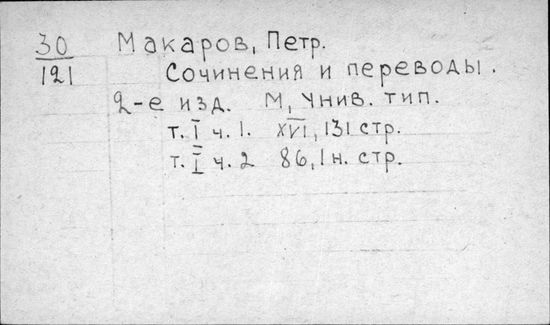 30 Макаров, Петр.
121 Сочинения и переводы.
2-е изд. М, Унив. тип.
т. I ч. 1. XVI, 131 стр.
т. I ч. 2 86, 1 н. стр.